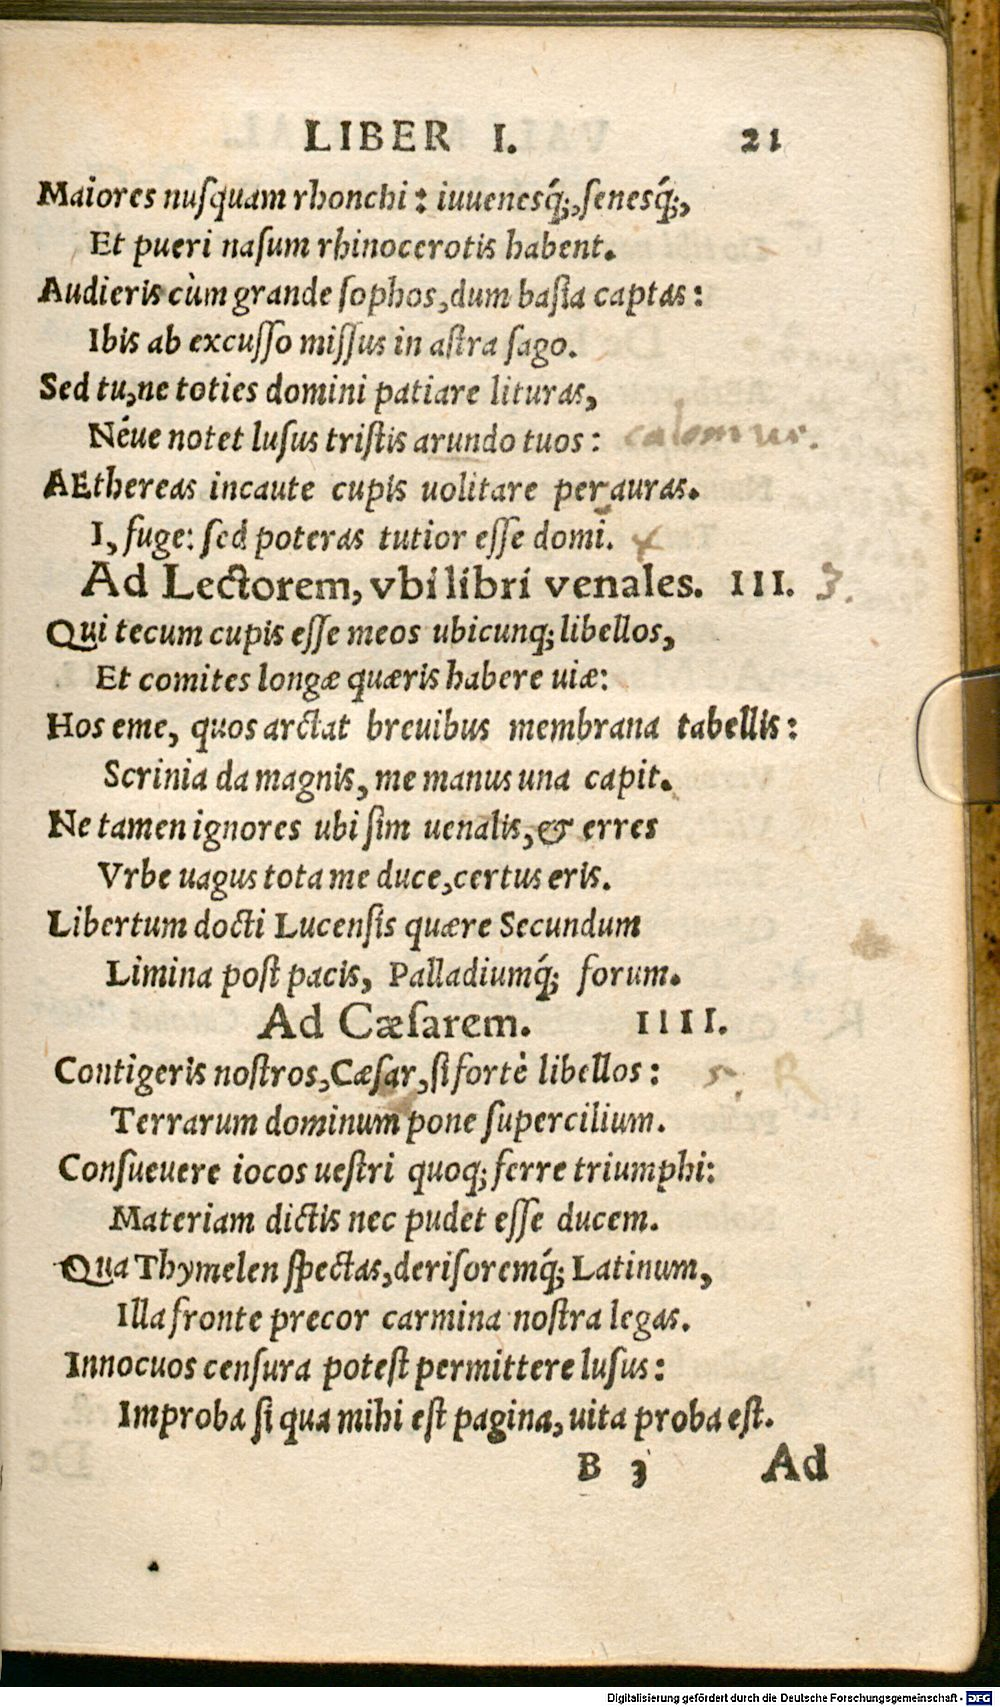 LIBER I. 21
Maiores nusquam rhonchi: iuuenesq́;, senesq́;,
Et pueri nasum rhinocerotis habent.
Audieris cùm grande sophos, dum basia captas:
Ibis ab excusso missus in astra sago.
Sed tu, ne toties domini patiare lituras,
Néue notet lusus tristis arundo tuos: calamus.
AEthereas incaute cupis uolitare per auras.
I, fuge: sed poteras tutior esse domi.
Ad Lectorem, vbi libri venales. III. 3.
Qui tecum cupis esse meos ubicunq; libellos,
Et comites longæ quæris habere uiæ:
Hos eme, quos arctat breuibus membrana tabellis:
Scrinia da magnis, me manus una capit.
Ne tamen ignores ubi sim uenalis, & erres
Vrbe uagus tota me duce, certus eris.
Libertum docti Lucensis quære Secundum
Limina post pacis, Palladiumq́; forum.
Ad Cæsarem. IIII.
Contigeris nostros, Cæsar, si fortè libellos: 5. R
Terrarum dominum pone supercilium.
Consueuere iocos uestri quoq; ferre triumphi:
Materiam dictis nec pudet esse ducem.
Qua Thymelen spectas, derisoremq́; Latinum,
Illa fronte precor carmina nostra legas.
Innocuos censura potest permittere lusus:
Improba si qua mihi est pagina, uita proba est.
B 3 Ad
Digitalisierung gefördert durch die Deutsche Forschungsgemeinschaft - DFG